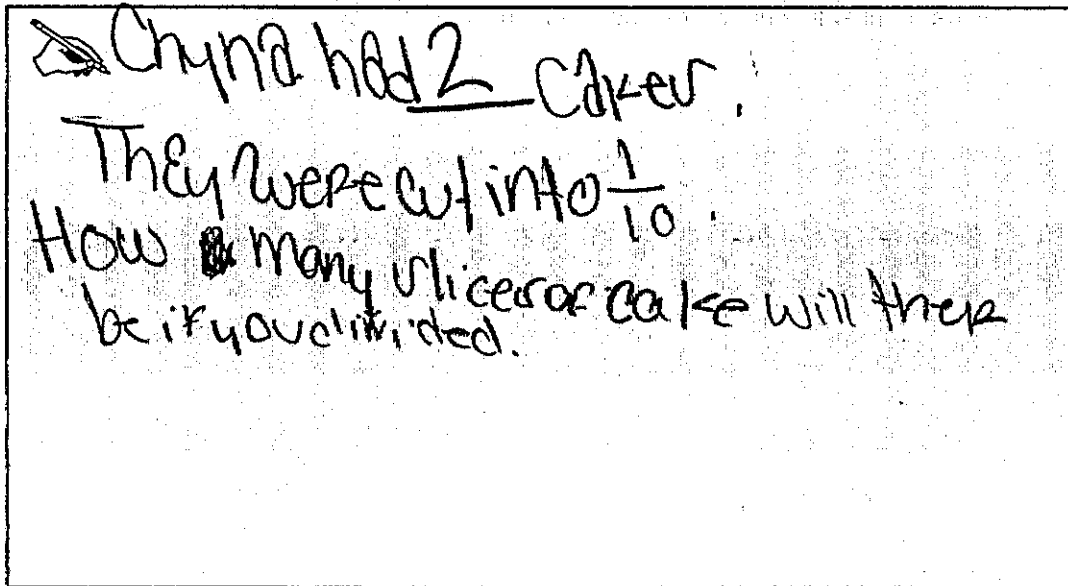 Chyna had 2 cakes.
They were cut into 1/10.
How many slices of cake will there
be if you divided.